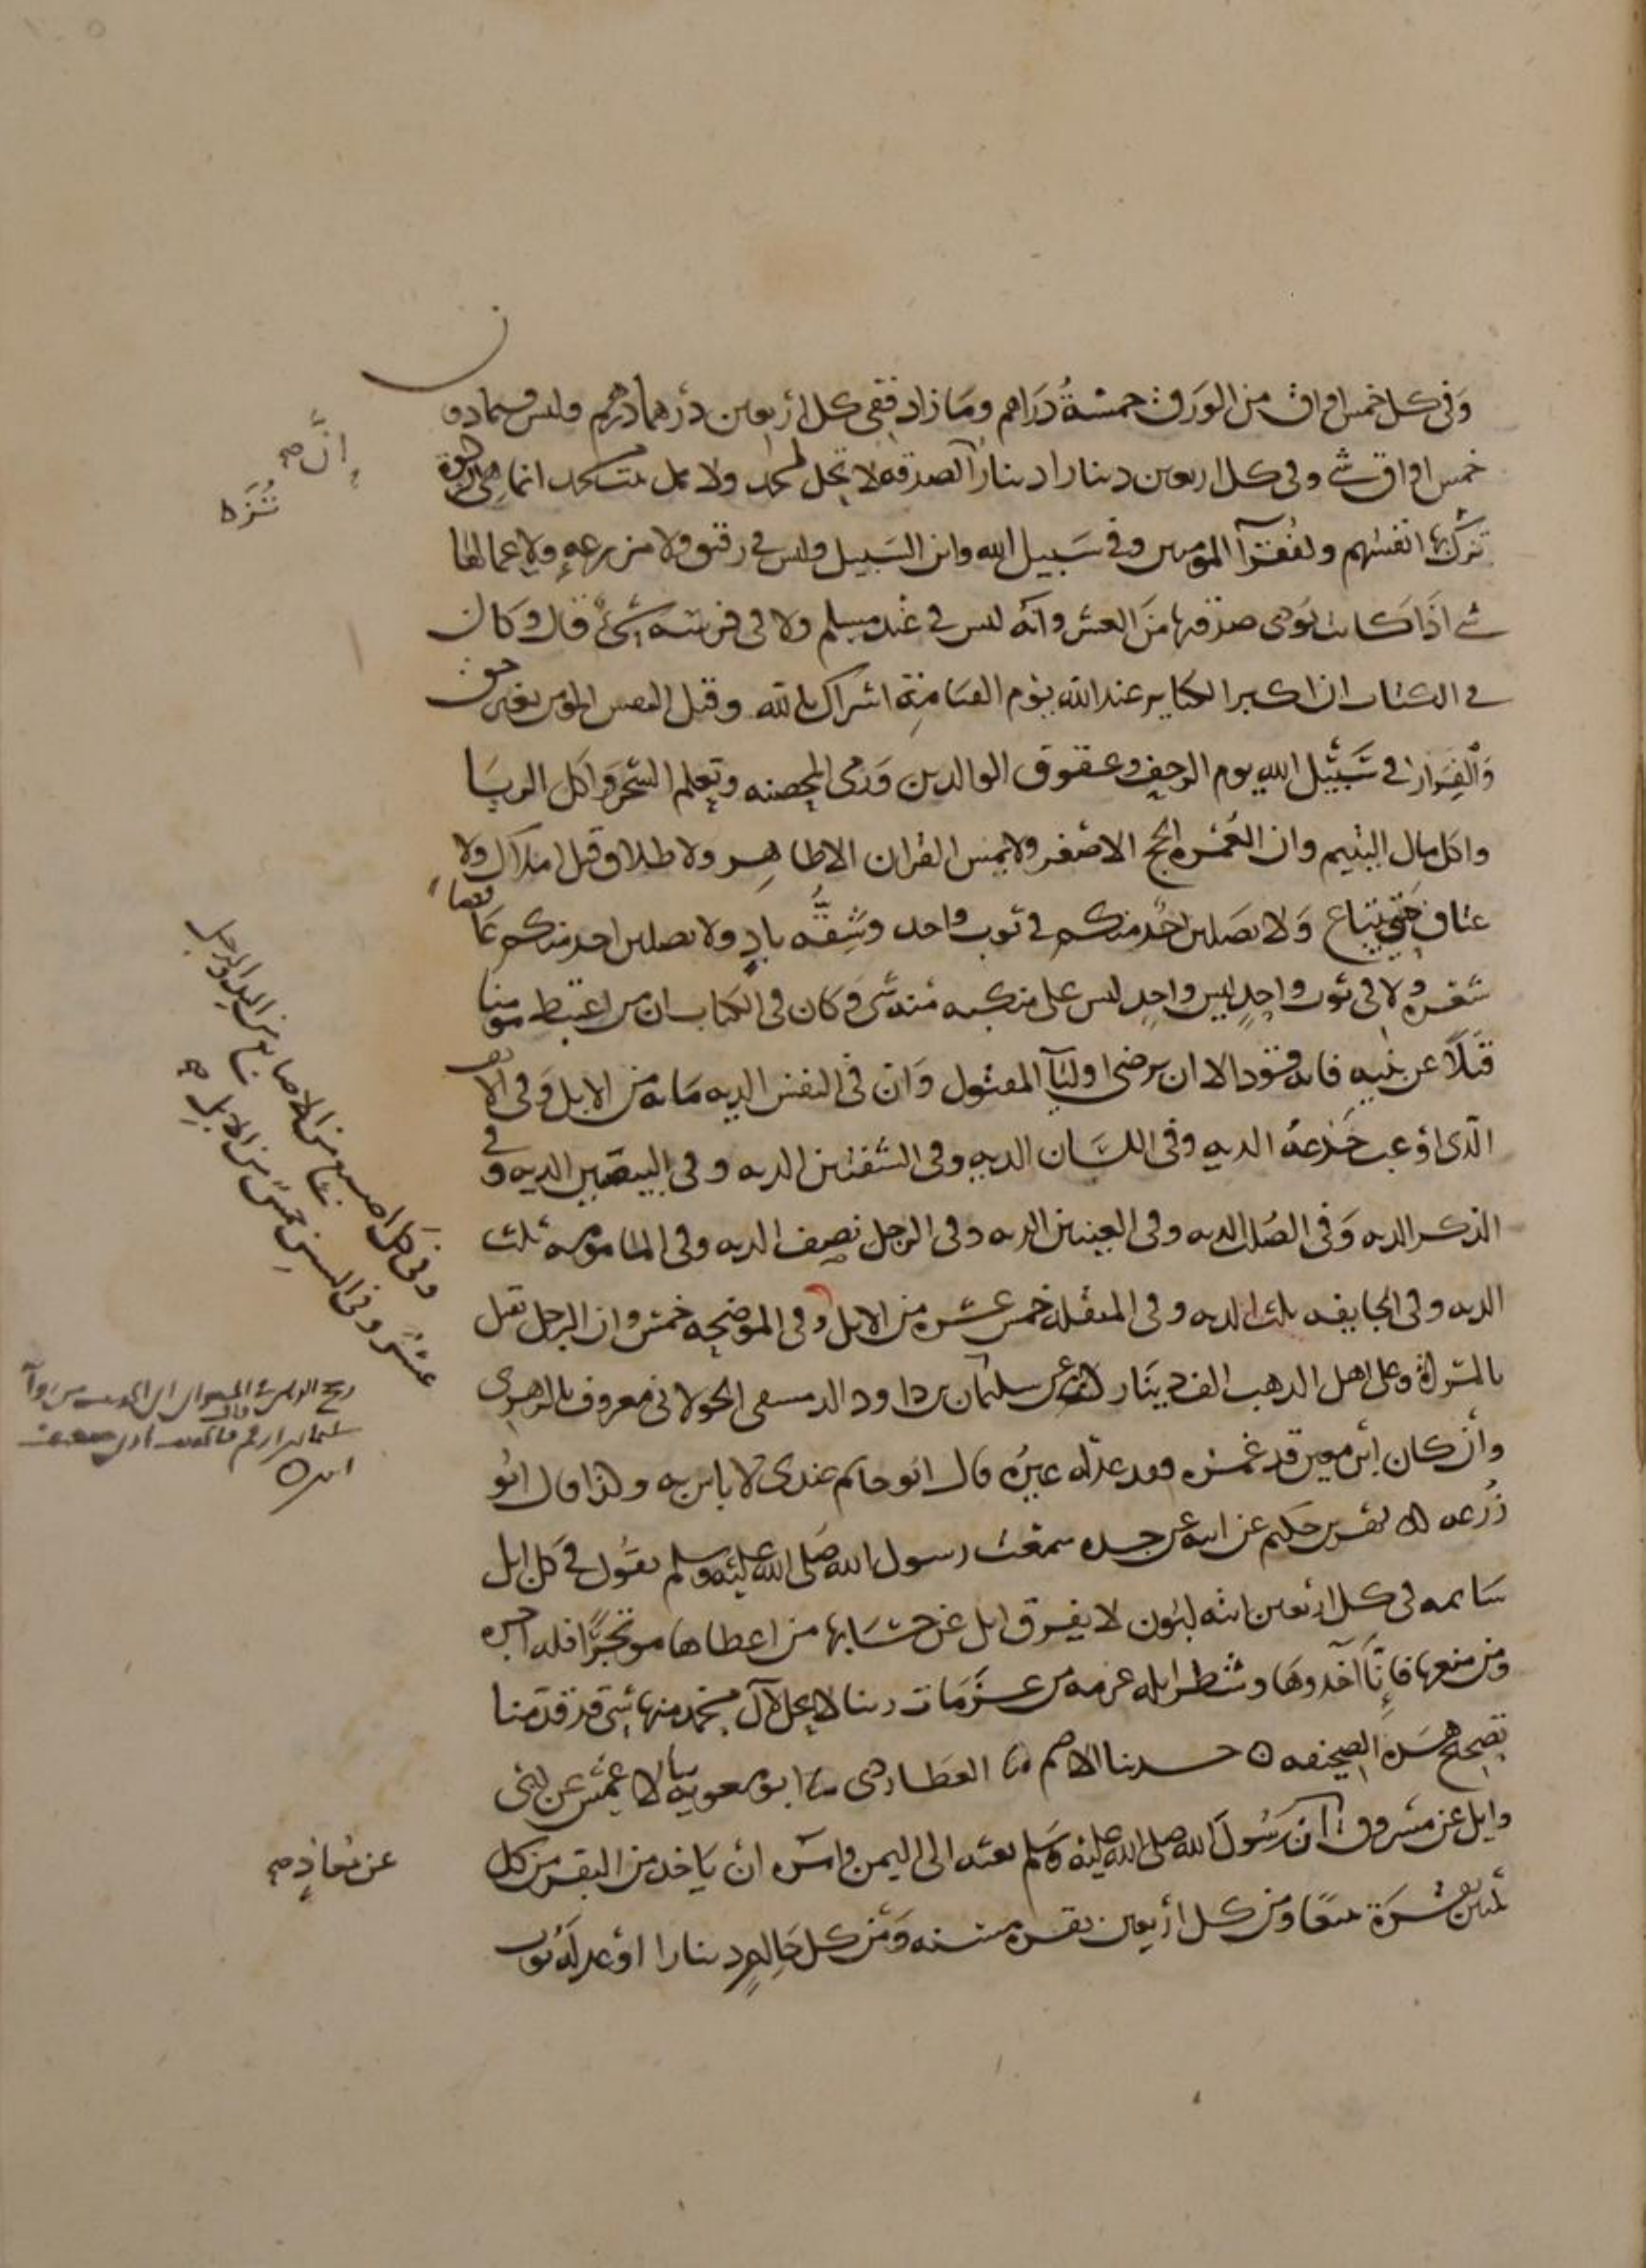 وفى كل خمس اواق من الورق خمسة دراهم وما زاد ففى كل أربعين درهما درهم وليس فيما دون
خمس اواق شى وفى كل اربعين دينارا دينار الصدقة لا تحل لمحمد ولا اهل بيت محمد انما هى الزكوة
تزكى بها انفسهم ولفقرآ المومنين وفى سبيل الله وابن السبيل وليس فى رقيق ولا مزرعة ولا عمالها
شى اذا كانت تودى صدقتها من العشر وانه ليس فى عبد مسلم ولا فى فرسه شئ قال وكان
فى الكتاب ان اكبر الكباير عند الله يوم القيامة اشراك بالله وقتل النفس المومن بغير حق
والفرار فى سبيل الله يوم الزحف وعقوق الوالدين ورمى المحصنه وتعلم السحر واكل الربا
واكل مال اليتيم وان العمره الحج الاصغر ولا يمس القران الا طاهر ولا طلاق قبل املاك ولا
عتاق حتى يبتاع ولا يصلين احد منكم فى ثوب واحد وشقه باد ولا يصلين احد منكم عاقصا
شعره ولا فى ثوب واحد ليس على منكبه منه شى وكان فى الكتاب ان من اعتبط مومنا
قتلا عن بينه فانه قود الا ان يرضى اوليآ المقتول وان فى النفس الديه مايه من الابل وفى الانف
الذى اوعب جدعه الديه وفى اللسان الديه وفى الشفتين الديه وفى البيضتين الديه وفى
الذكر الديه وفى الصلب الديه وفى العينين الديه وفى الرجل نصف الديه وفى المامومه ثلث
الديه وفى الجايفه ثلث الديه وفى المنقله خمس عشره من الابل وفى الموضحه خمس وان الرجل يقتل
بالمراة وعلى اهل الذهب الف دينار سليمان بن داود الدمسقى الخولانى معروف بالزهرى
وأن كان ابن معين قد غمزه فقد عدله غيره قال ابو حاتم عندى لا باس به وكذا قال ابو
زرعه بهز بن حكيم عن ابيه عن جده سمعت رسول الله صلى الله عليه وسلم يقول فى كل ابل
سايمه فى كل اربعين ابنه لبون لا يفرق ابل عن حسابها من اعطاها موتجرا فله اجره
ومن منعها فإنا آخذوها وشطر ابله عزمه من عزمات ربنا لا يحل لآل محمد منها شى قد قدمنا
تصحيح هذه الصحيفه حدثنا الاصم العطاردى ابو معويه الاعمش عن ابى
وايل عن مسروق أن رسول الله صلى الله عليه وسلم بعثه الى اليمن وامره أن ياخذ من البقر من كل
ثلثين بقرة تبيعا ومن كل أربعين بقره مسنه ومن كل حالم دينارا أو عدله ثوب
إن صح
تزكا
وفى كل اصبع من الاصابع من اليد والرجل
عشر وفى السن خمس من الابل صح
عن معاذ صح